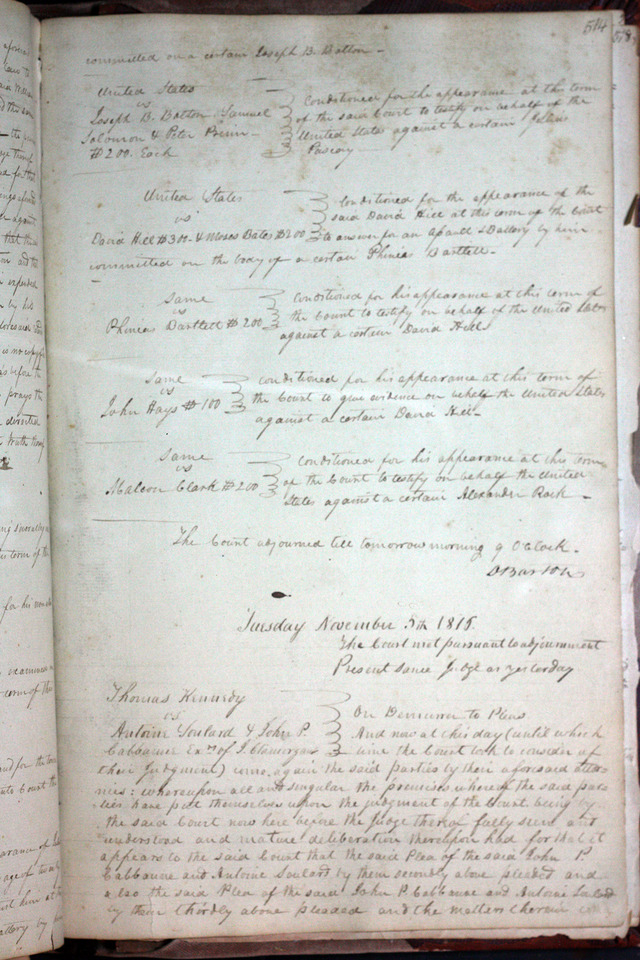 514
committed on a certain Joseph B. Batton -
United States
vs
Joseph B. Batton Samuel
Solomon & Peter Primm -
$200. Each
Conditioned for the appearance at the term
of the said Court to testify on behalf of the
United States against a certain
United States
vs
David Hill $300 - & Moses Bates $200
Conditioned for the appearance of the
said David Hill at this term of the Court
to answer for an Assault & Battery by him
committed on the body of a certain Phineas Bartlett -
Same
vs
Phineas Bartlett $200
Conditioned for his appearance at this term of
the Court to testify on behalf of the United States
against a certain David Hill
Same
vs
John Hays $100
conditioned for his appearance at this term of
the Court to give evidence on behalf the United States
against a certain David Hill -
Same
vs
Malcom Clark $200
conditioned for his appearance at this term
of the Court to testify on behalf the United
States against a certain Alexander Rock -
The Court adjourned till tomorrow morning 9 OClock.
D Barton
Tuesday November 5th 1815
The Court met pursuant to adjournment
Present same Judge as yesterday
Thomas Kennedy
vs
Antoine Soulard & John P.
Cabbanne Exrs of J. Clamorgan
On Demurrer to Pleas
And now at this day (until which
time the Court took to consider of
their Judgment) come again the said parties by their aforesaid attor-
nies: whereupon all and singular the premises whereof the said par-
ties have put themselves upon the judgment of the Court being by
the said Court now here before the Judge thereof fully seen and
understood and mature deliberation thereupon had for that it
appears to the said Court that the said Plea of the said John P.
Cabbanne and Antoine Soulard by them secondly above pleaded and
also the said Plea of the said John P Cabbanne and Antoine Soulard
by them thirdly above pleaded and the matters therein